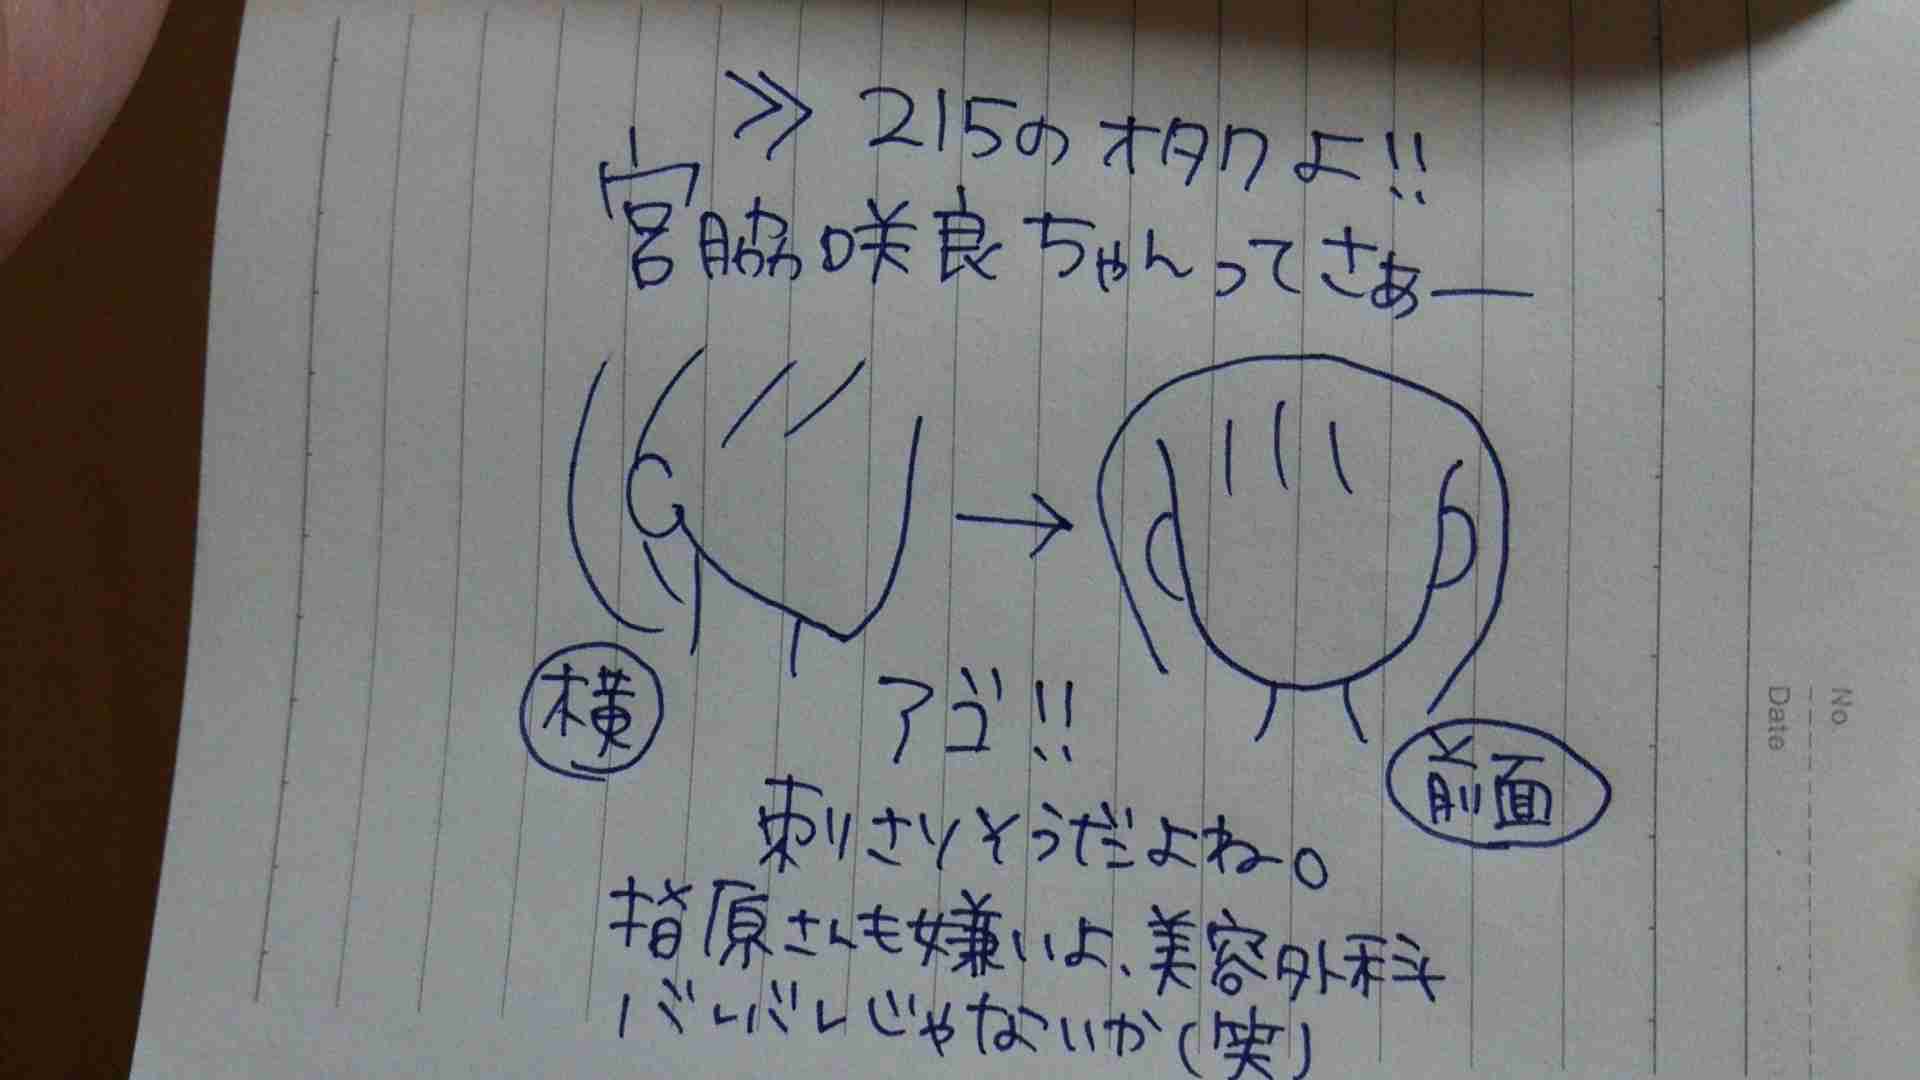 ≫215のオタクよ!!
宮脇咲良ちゃんってさぁー
横
アゴ!!
前面
刺さりそうだよね。
指原さんも嫌いよ、美容外科
バレバレじゃないか(笑)
No.
Date